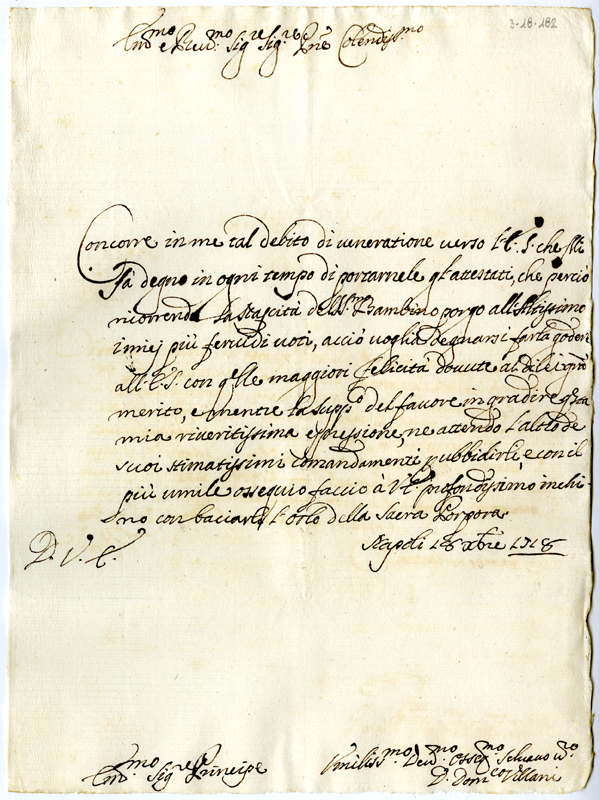 3-18-182
Em.mo e Rev.mo Sig.re Sig.re P.ne Colendiss.mo
Concorre in me tal debito di veneratione verso V.E. che Mi
fà degno in ogni tempo di portarnele gl'attestati, che perciò
ricorrendo la Nascità del S.mo Bambino porgo all'Altissimo
i miej più fervidi voti, acciò voglia degnarsi farla godere
all'E.V. con q.lle maggiori felicità dovute al di lei
merito, e mentre la supp.co del favore in gradire q.sta
mia riveritissima espressione, ne attendo l'alto de
suoi stimatissimi comandamenti p. ubbidirli, e con il
più umile ossequio faccio à V.E. profondissimo inchi-
no con baciarli l'orlo della Sacra Porpora.
Napoli 18 Xbre 1718
D. V. E.
Em.mo Sig.re Principe
Umiliss.mo Dev.mo Osseq.mo Schiavo
D. Dom.co Villani